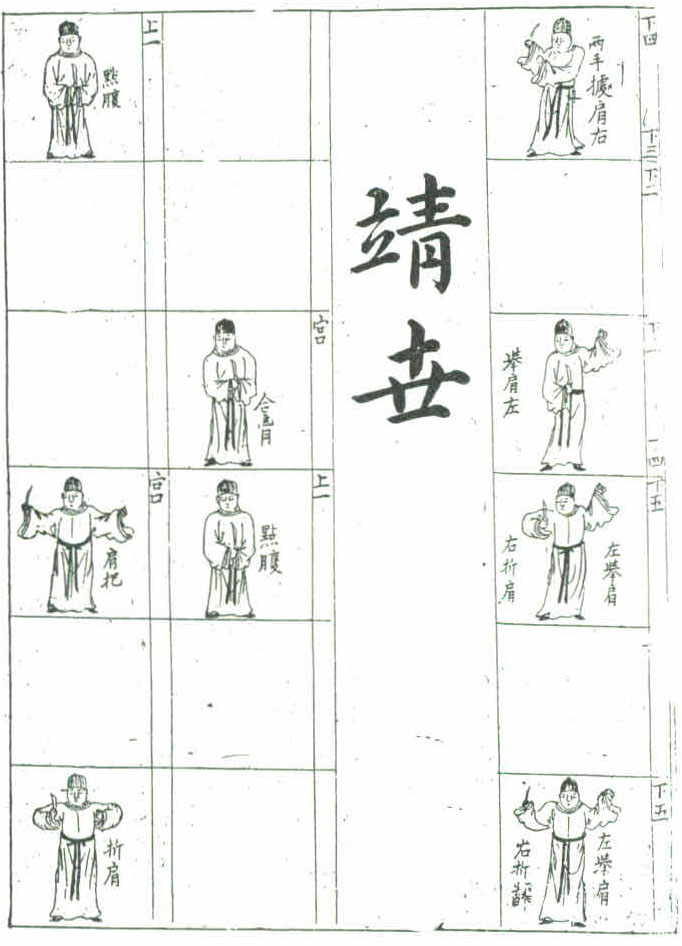 下四
兩手據肩右
下三
下二
下一
擧肩左
下五
左擧肩
右折肩
下五
左擧肩
靖世
宮
合胷
上一
點腹
上一
點腹
宮
肩把
折肩